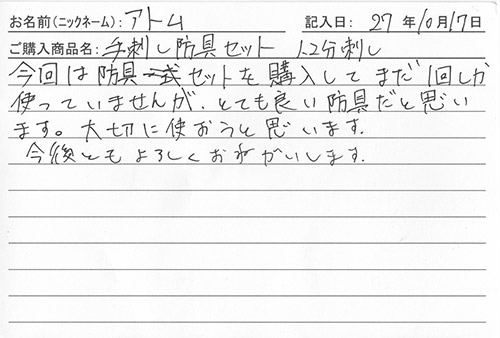 お名前(ニックネーム): アトム 記入日: 27 年 10月 17日
ご購入商品名: 手刺し防具セット 1.2分刺し
今回は防具一式セットを購入してまだ1回しか
使っていませんが、とても良い防具だと思い
ます。大切に使おうと思います。
今後ともよろしくおねがいします。